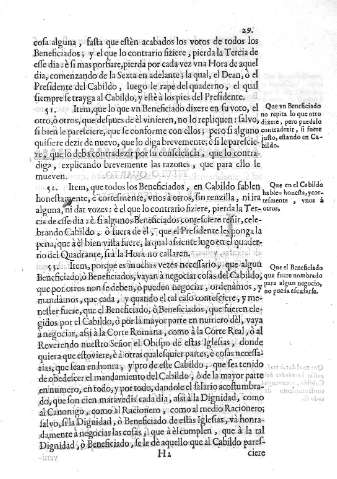 29.
cosa alguna, fasta que estèn acabados los votos de todos los
Beneficiados; y el que lo contrario fiziere, pierda la Tercia
de ese dia: è si mas porfiare, pierda por cada vez vna Hora de aquel
dia, comenzando de la Sexta en adelante; la qual, el Dean, ò el
Presidente del Cabildo, luego le rape del quaderno, el qual
siempre se trayga al Cabildo, y estè à los pies del Presidente.
51. Item, que lo que vn Beneficiado dixere en su voto, el
otro, ò otros, que despues de èl vinieren, no lo repliquen: salvo,
si bien le paresciere, que se conforme con ellos; pero si alguno
quisiere dezir de nuevo, que lo diga brevemente; è si le parescie-
re, que lo deba contradezir por su consciencia, que lo contra-
diga, explicando brevemente las razones, que para ello le
mueven.
Que vn Beneficiado
no repita lo que otro
dixere, pero puedalo
contradezir, si fuere
justo, estando en Ca-
bildo.
52. Item, que todos los Beneficiados, en Cabildo fablen
honestamente, è cortesmente, vnos à otros, sin renzilla, ni ira
alguna, ni dar vozes: è el que lo contrario fiziere, pierda la Ter-
cia de ese dia: è si algunos Beneficiados
celebrando Cabildo, ò fuera de èl, que el Presidente les ponga la
pena, que à èl bien visto fuere, la qual asiente luego en el quader-
no del Quadrante, si à la Hora no callaren.
Que en el Cabildo
hablen honesta, y cor-
tesmente, vnos à
otros.
53. Item, porque es muchas vezes necessario, que algun
Beneficiado, ò Beneficiados, vayan à negociar cosas del Cabildo,
que por otros non se deben, ò pueden negociar, ordenamos, y
mandamos, que cada, y quando el tal caso contesciere, y me-
nester fuere, que el Beneficiado, ò Beneficiados, que fueren ele-
gidos por el Cabildo, ò por la mayor parte en numero dèl, vaya
à negociar, asi à la Corte Romana, como à la Corte Real, ò al
Reverendo nuestro Señor el Obispo de estas Iglesias, donde
quiera que estoviere, è à otras qualesquier partes, è cosas necessa-
rias, que sean en honra, y pro de ese Cabildo, que sea tenido
de obedescer el mandamiento del Cabildo, ò de la mayor parte
en numero, en todo, y por todo, dandole el salario acostumbra-
do, que son cien maravedis cada dia, asi à la Dignidad, como
al Canonigo, como al Racionero, como al medio Racionero;
salvo, si la Dignidad, ò Beneficiado de estas Iglesias, và honra-
damente à negociar las cosas, que à èl cumplen, que à la tal
Dignidad, ò Beneficiado, se le dè aquello que al Cabildo pares-
Que el Beneficiado
que fuere nombrado
para algun negocio,
no pueda escusarse.
H2
ciere